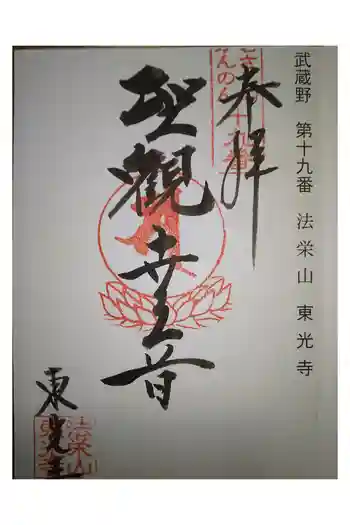 武蔵野 第十九番 法栄山 東光寺
奉拝
十九番
聖觀世音
東光寺
法栄山
東光寺